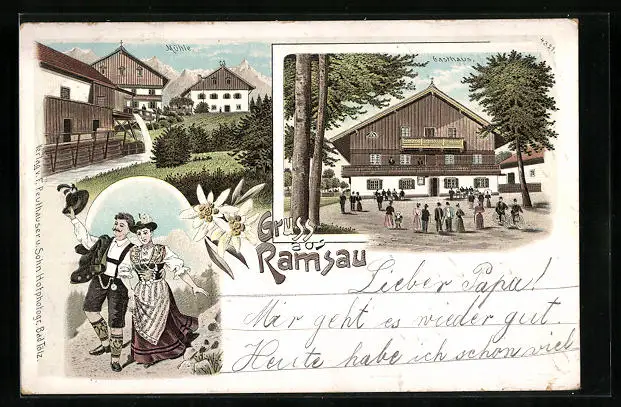 Mühle
Gasthaus.
4321
Gruss
aus
Ramsau
Lieber Papa!
Mir geht es wieder gut
Heute habe ich schon viel
Verlag v. F. Peulhauser u. Sohn Hofphotogr. Bad Tölz.